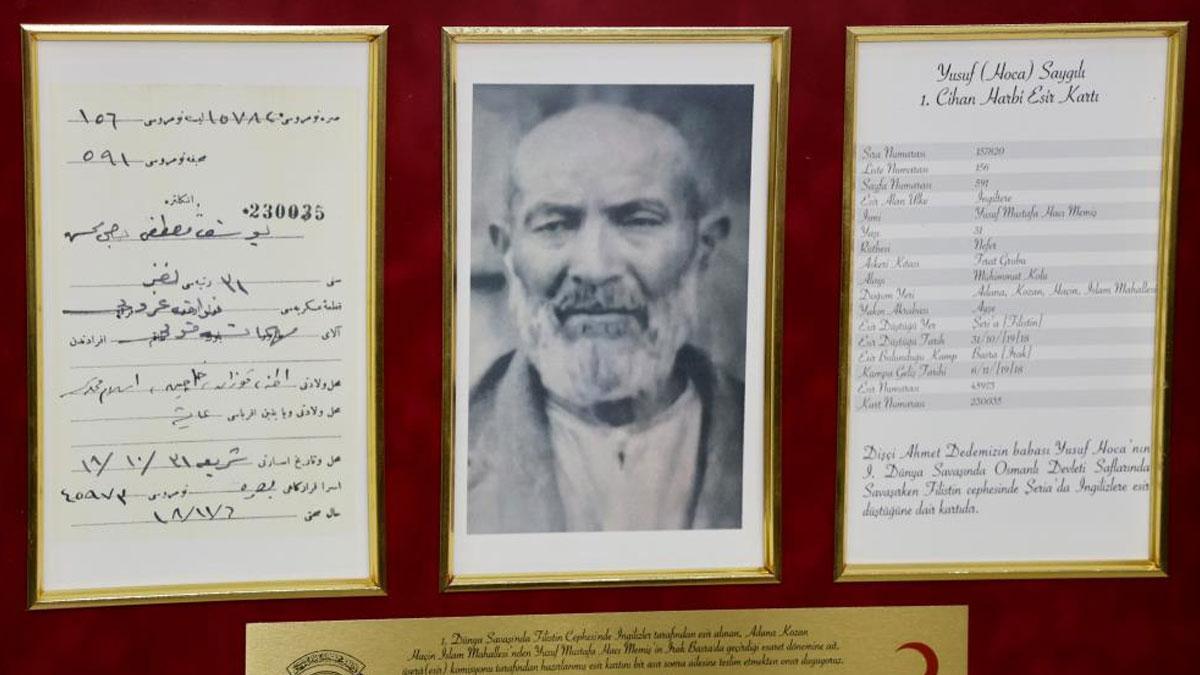 صره نومروسی ١٥٧٨٢٠ لیست نومروسی ١٥٦
صحیفه نومروسی ٥٩١
انكلتره
230035
یوسف مصطفی حاجی
سنی ٣١ رتبه‌سی نفر
قطعهٔ عسكریه‌سی
آلای افرادندن
محل ولادتی اطنه، قوزان، حاچین، اسلام
محل ولادتی ویا یقین اقرباسی
محل وتاریخ اسارتی شریعه ٣١ / ١٠ / ١٨
اسرا قرارگاهی بصره نومروسی ٤٥٩٧٣
حال صحتی ١٨/١١/٦
Yusuf (Hoca) Saygılı
1. Cihan Harbi Esir Kartı
Sıra Numarası 157820
Liste Numarası 156
Sayfa Numarası 591
Esir Alan Ülke İngiltere
İsmi Yusuf Mustafa Hacı Memiş
Yaşı 31
Rütbesi Nefer
Askeri Kıtası Fırat Grubu
Alayı Mühimmat Kolu
Doğum Yeri Adana, Kozan, Haçin, İslam Mahallesi
Yakın Akrabası Ayşe
Esir Düştüğü Yer Şeri'a [Filistin]
Esir Düştüğü Tarih 31/10/[19]18
Esir Bulunduğu Kamp Basra [Irak]
Kampa Geliş Tarihi 6/11/[19]18
Esir Numarası 45973
Kart Numarası 230035
Dişçi Ahmet Dedemizin babası Yusuf Hoca'nın
I. Dünya Savaşında Osmanlı Devleti Saflarında
Savaşırken Filistin cephesinde Şeria'da İngilizlere esir
düştüğüne dair kartıdır.
1. Dünya Savaşında Filistin Cephesinde İngilizler tarafından esir alınan, Adana Kozan
Haçin İslam Mahallesi'nden Yusuf Mustafa Hacı Memiş'in Irak Basra'da geçirdiği esaret dönemine ait,
üserâ (esir) komisyonu tarafından hazırlanmış esir kartını bir asır sonra ailesine teslim etmekten onur duyuyoruz.